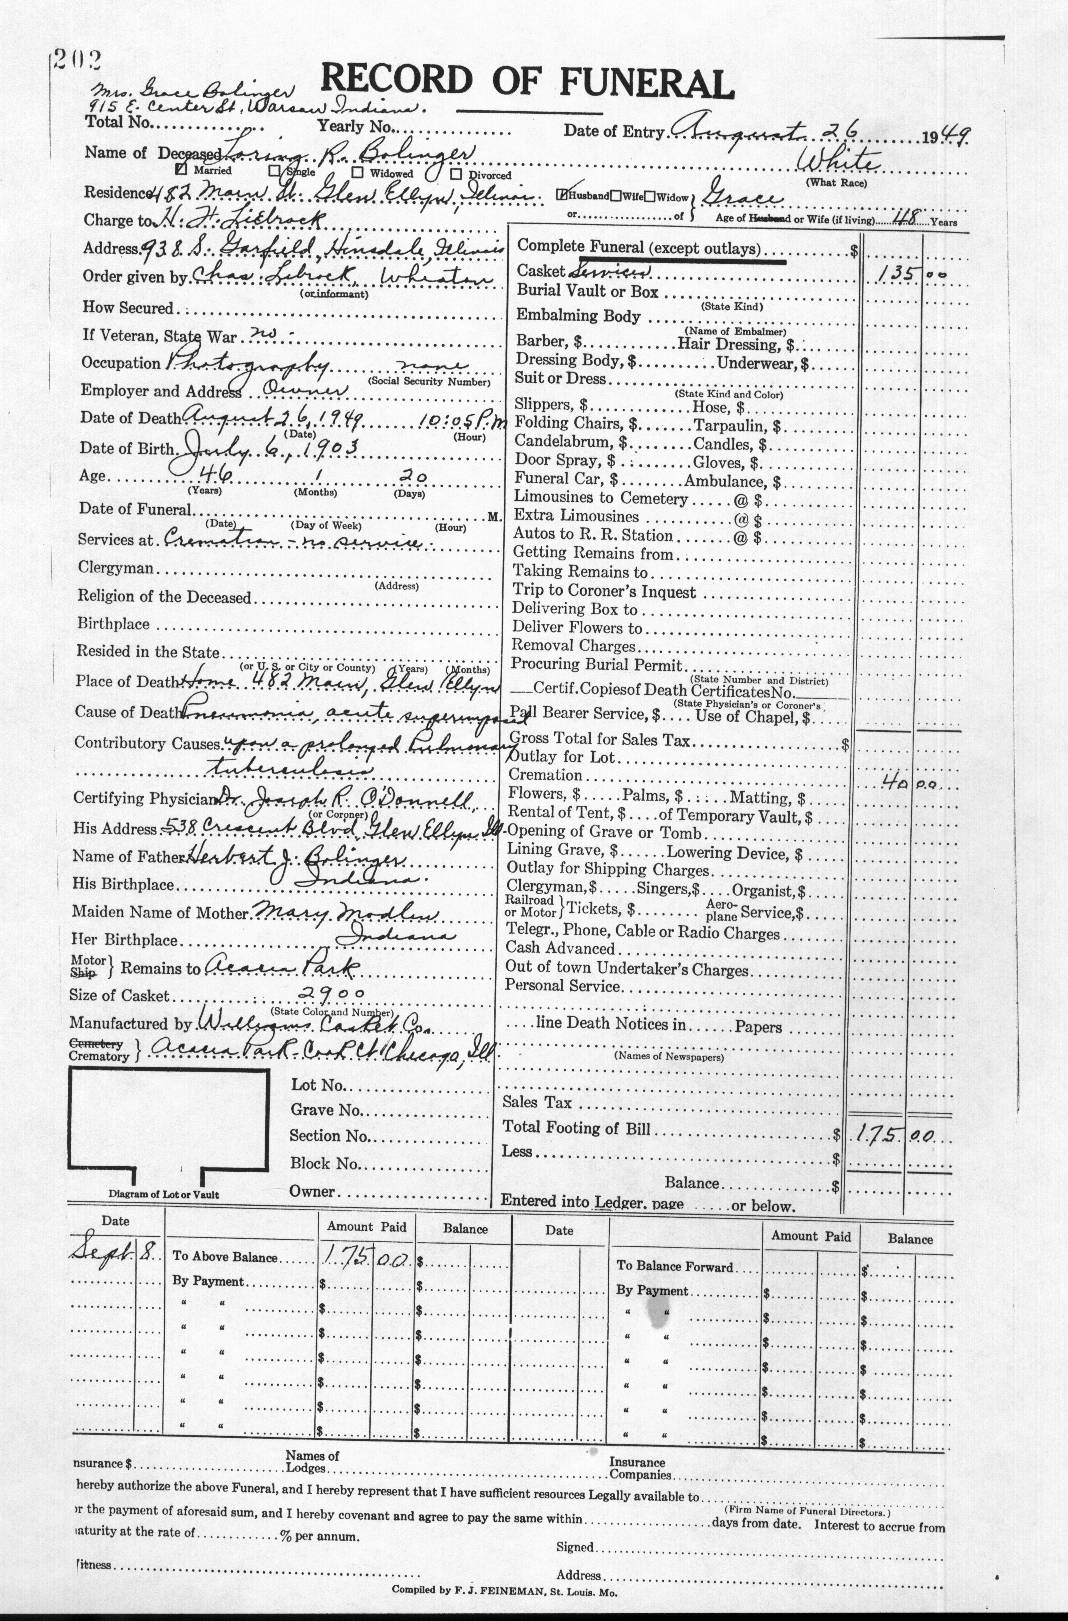 202
RECORD OF FUNERAL
Mrs. Grace Bolinger
915 E. Center St, Warsaw Indiana.
Total No. Yearly No. Date of Entry August 26 1949
Name of Deceased Loring R. Bolinger White
Married Single Widowed Divorced (What Race)
Residence 482 Main St. Glen Ellyn, Illinois Husband Wife Widow } Grace
or of } Age of Husband or Wife (if living) 48 Years
Charge to H. F. Liebrock
Address 938 S. Garfield, Hinsdale, Illinois
Order given by Chas. Librock, Wheaton
(or informant)
How Secured
If Veteran, State War no -
Occupation Photography none
(Social Security Number)
Employer and Address Owner
Date of Death August 26, 1949 10:05 P.M
(Date) (Hour)
Date of Birth July 6, 1903
Age 46 1 20
(Years) (Months) (Days)
Date of Funeral M.
(Date) (Day of Week) (Hour)
Services at Cremation - no service.
Clergyman
(Address)
Religion of the Deceased
Birthplace
Resided in the State
(or U. S. or City or County) (Years) (Months)
Place of Death Home 482 Main, Glen Ellyn
Cause of Death Pneumonia, acute superimposed
Contributory Causes upon a prolonged Pulmonary
tuberculosis
Certifying Physician Dr. Joseph R. O'Donnell,
(or Coroner)
His Address 538 Crescent Blvd, Glen Ellyn, Ill.
Name of Father Herbert J. Bolinger
His Birthplace Indiana.
Maiden Name of Mother Mary Modlin
Her Birthplace Indiana
Motor
Ship } Remains to Acacia Park
Size of Casket 2900
(State Color and Number)
Manufactured by Williams Casket Co.
Cemetery
Crematory } Acacia Park - Cook Ct. Chicago, Ill
Lot No.
Grave No.
Section No.
Block No.
Owner
Diagram of Lot or Vault
Complete Funeral (except outlays) $
Casket Services 135 00
Burial Vault or Box
(State Kind)
Embalming Body
(Name of Embalmer)
Barber, $ Hair Dressing, $
Dressing Body, $ Underwear, $
Suit or Dress
(State Kind and Color)
Slippers, $ Hose, $
Folding Chairs, $ Tarpaulin, $
Candelabrum, $ Candles, $
Door Spray, $ Gloves, $
Funeral Car, $ Ambulance, $
Limousines to Cemetery @ $
Extra Limousines @ $
Autos to R. R. Station @ $
Getting Remains from
Taking Remains to
Trip to Coroner's Inquest
Delivering Box to
Deliver Flowers to
Removal Charges
Procuring Burial Permit
(State Number and District)
Certif. Copies of Death Certificates No.
(State Physician's or Coroner's
Pall Bearer Service, $ Use of Chapel, $
Gross Total for Sales Tax $
Outlay for Lot
Cremation 40 00
Flowers, $ Palms, $ Matting, $
Rental of Tent, $ of Temporary Vault, $
Opening of Grave or Tomb
Lining Grave, $ Lowering Device, $
Outlay for Shipping Charges
Clergyman, $ Singers, $ Organist, $
Railroad
or Motor } Tickets, $ Aero-
plane Service, $
Telegr., Phone, Cable or Radio Charges
Cash Advanced
Out of town Undertaker's Charges
Personal Service
line Death Notices in Papers
(Names of Newspapers)
Sales Tax
Total Footing of Bill $ 175 00
Less $
Balance $
Entered into Ledger, page or below.
Date Amount Paid Balance Date Amount Paid Balance
Sept. 8 To Above Balance 175 00 $ To Balance Forward $
By Payment $ $ By Payment $ $
" " $ $ " " $ $
" " $ $ " " $ $
" " $ $ " " $ $
" " $ $ " " $ $
" " $ $ " " $ $
" " $ $ " " $ $
nsurance $ Names of
Lodges Insurance
Companies
hereby authorize the above Funeral, and I hereby represent that I have sufficient resources Legally available to
(Firm Name of Funeral Directors.)
or the payment of aforesaid sum, and I hereby covenant and agree to pay the same within days from date. Interest to accrue from
aturity at the rate of % per annum.
Signed
itness
Address
Compiled by F. J. FEINEMAN, St. Louis. Mo.